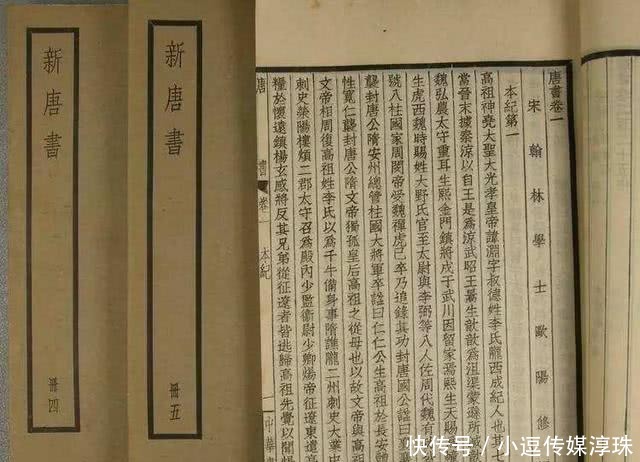 新唐書
冊四
新唐書
冊五
唐書卷一
宋翰林學士歐陽修
本紀第一
高祖神堯大聖大光孝皇帝諱淵字叔德姓李氏隴西成紀人也其
當晉末據秦涼以自王是爲涼武昭王暠生歆歆爲沮渠蒙遜所滅
魏弘農太守重耳生熙金門鎮將戍于武川因留家焉熙生天賜
生虎西魏時賜姓大野氏官至太尉與李弼等八人佐周代魏有
號八柱國家周閔帝受魏禪虎已卒乃追錄其功封唐國公諡曰
襲封唐公隋安州總管柱國大將軍卒諡曰仁仁公生高祖於長安
性寬仁襲封唐公隋文帝獨孤皇后高祖之從母也以故文帝與高
文帝相周復高祖姓李氏以爲千牛備身事隋譙隴二州刺史大業
刺史滎陽樓煩二郡太守召爲殿內少監衛尉少卿煬帝征遼東遣
糧於懷遠鎮楊玄感將反其兄弟從征遼者皆逃歸高祖先覺以聞
唐書 卷一 本紀
中華
快传号／小逗传媒淳珠